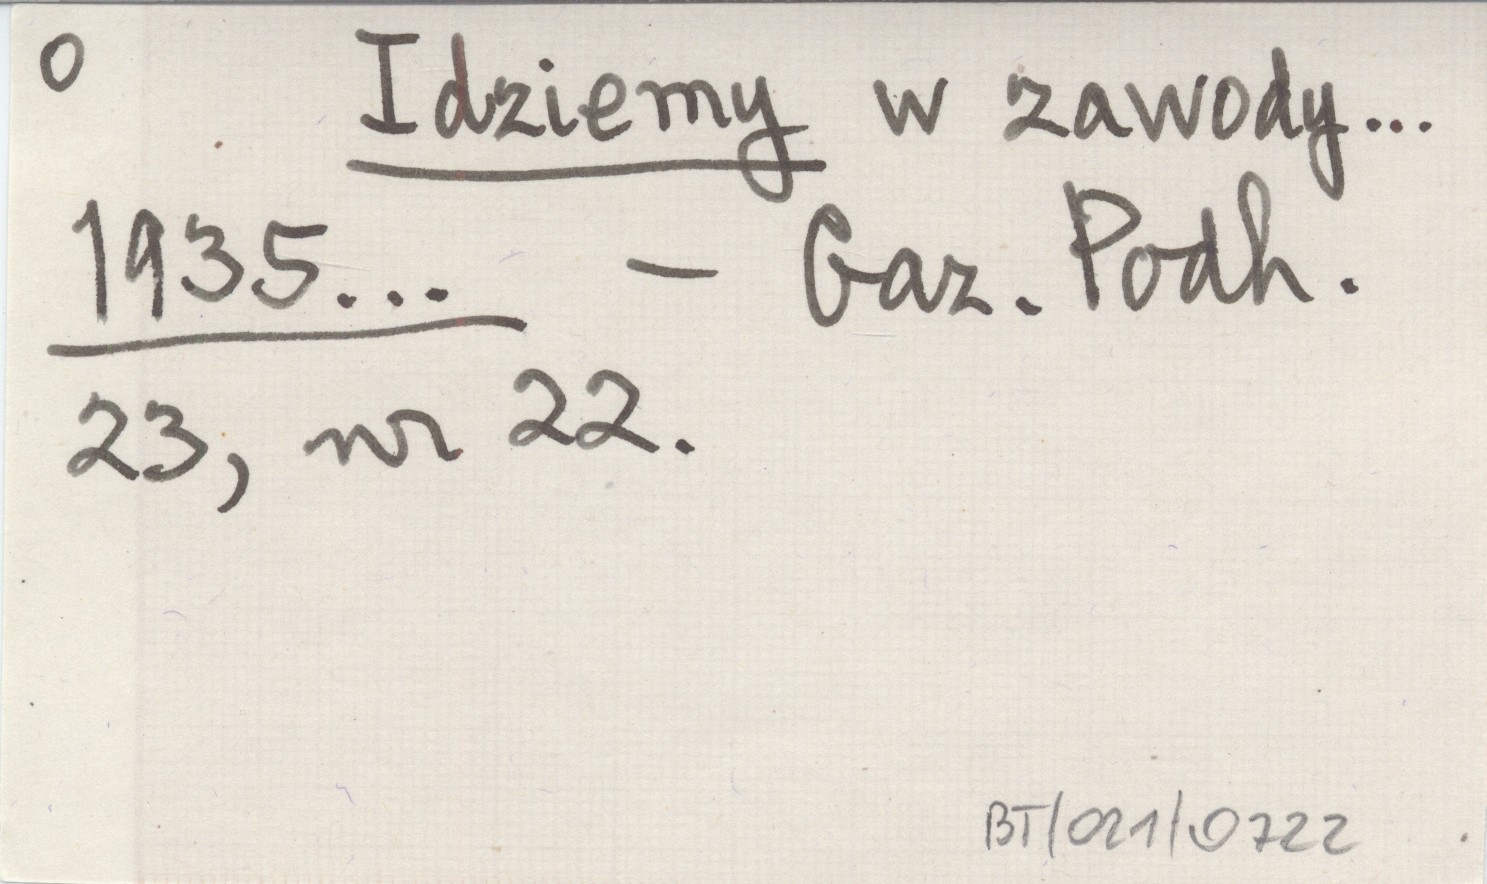 0 Idziemy w zawody...
1935... – Gaz. Podh.
23, nr 22.
BT/021/0722